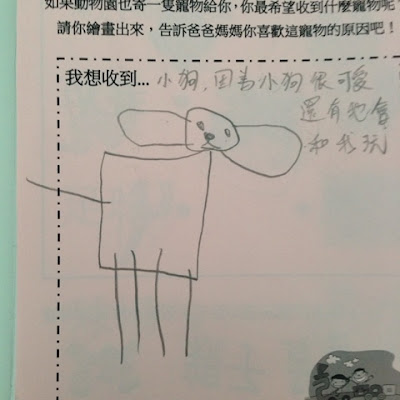 如果動物園也寄一隻寵物給你，你最希望收到什麼寵物呢
請你繪畫出來，告訴爸爸媽媽你喜歡這寵物的原因吧！
我想收到... 小狗，因為小狗很可愛
還有牠會
和我玩